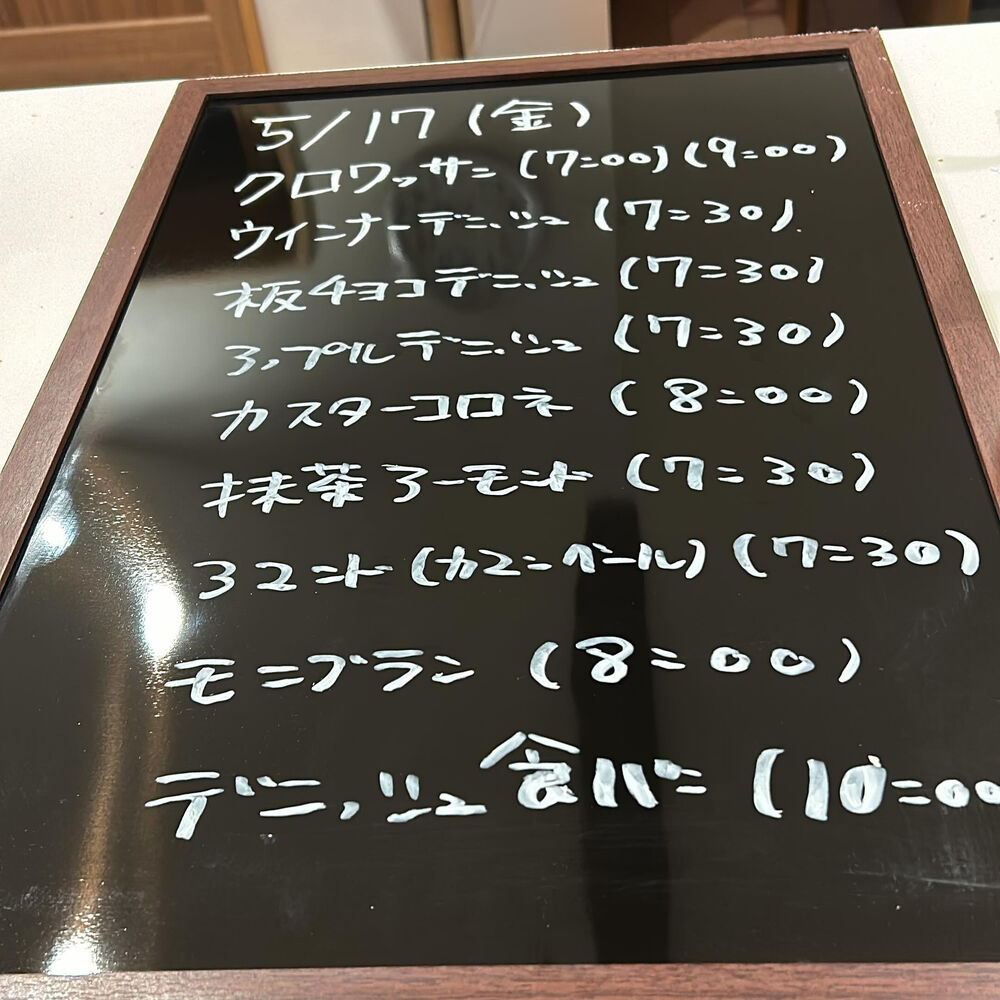 5/17(金)
クロワッサン (7:00)(9:00)
ウインナーデニッシュ (7:30)
板チョコデニッシュ (7:30)
アップルデニッシュ (7:30)
カスターコロネ (8:00)
抹茶アーモンド (7:30)
アマンド(カマンベール) (7:30)
モンブラン (8:00)
デニッシュ食パン (10:00